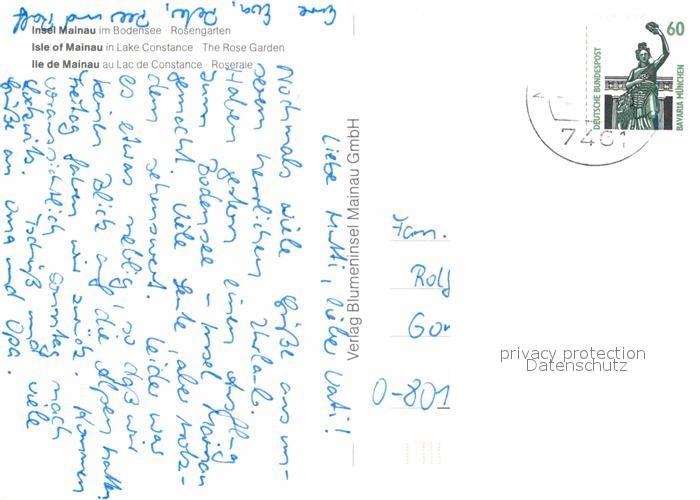 Insel Mainau im Bodensee · Rosengarten
Isle of Mainau in Lake Constance · The Rose Garden
Ile de Mainau au Lac de Constance · Roseraie
Liebe Mutti, lieber Vati!
Nochmals viele Grüße aus un-
serem herrlichen Urlaub.
Haben gestern einen Ausflug
zum Bodensee - Insel Mainau
gemacht. Viele Leute, aber trotz-
dem sehenswert. Leider war
es etwas neblig, so daß wir
keinen Blick auf die Alpen hatten.
Freitag fahren wir zurück. Kommen
voraussichtlich Sonntag nach
Tschüß und viele
Grüße an Oma und Opa.
Eure Eva, Pele, und Rolf
Verlag Blumeninsel Mainau GmbH
DEUTSCHE BUNDESPOST
60
BAVARIA MÜNCHEN
Fam.
Rolf
Gor
0-801
privacy protection
Datenschutz